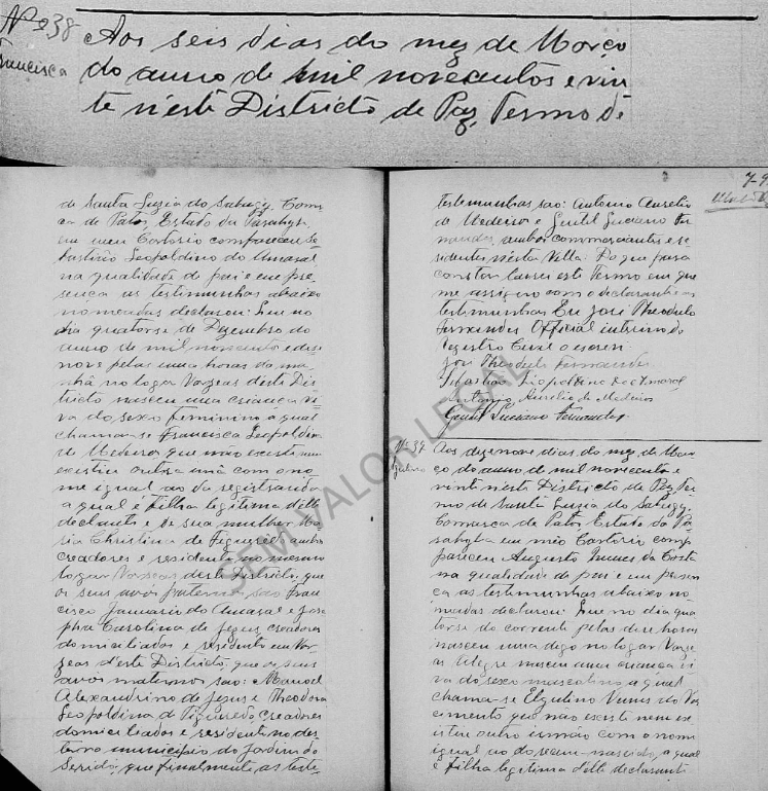 Nº 238
Francisca
Aos seis dias do mez de Março
do anno de mil novecentos e vin
te n'este Districto de Paz, Termo de
de Santa Luzia do Sabugy, Comar
ca de Patos, Estado da Parahyba
em meu Cartorio compareceu Se
bastião Leopoldino do Amaral
na qualidade de pai e em pre
sença as testimunhas abaixo
nomeadas declarou: Que no
dia quatorse de Dezembro do
anno de mil novecento e dese
nove pelas uma horas da ma
nhã no logar Vargeas deste Dis
tricto nasceu uma criança vi
va do sexo feminino a qual
chamar-se Francisca Leopoldin
de Medeiros que não existe nem
existiu outra irmã com o no
me igual ao da registrada
a qual é filha legitima d'elle
declarante e de sua mulher Ma
ria Christina de Figueirêdo ambos
creadores e residentes no mesmo
logar Vargeas deste Districto; que
os seus avos paternos são Fran
cisco Januario do Amaral e Jose
pha Carolina de Jesus creadores
domiciliados e residente em Var
geas d'este Districto; que os seus
avos maternos são: Manoel
Alexandrino de Jesus e Theodora
Leopoldina de Figueiredo creadores
domiciliados e residente no des
terro municipio do Jardim do
Seridó, que finalmente as teste
7-9
testemunhas são: Antonio Aurelio
de Medeiros e Gentil Luciano Fer
nandes, ambos commerciantes e re
sidentes nesta Villa. Do que para
constar lavrei este Termo em que
me assigno com o declarante e as
testimunhas Eu José Theodulo
Fernandes Official interino do
Registro Civil o escrevi.
José Theodulo Fernandes
Sebastião Leopoldino do Amaral
Antonio Aurelio de Medeiros
Gentil Luciano Fernandes
Nº 39
Aos dezenove dias do mez de Mar
ço do anno de mil novecento e
vinti nesta Districto de Paz, Ter
mo de Santa Luzia do Sabugy.
Comarca de Patos, Estado da Pa
rahyba em meo Cartorio com
pareceu Augusto Nunes da Costa
na qualidade de pai e em presen
ça as testimunhas abaixo no
meadas declarou: Que no dia qua
torse do corrente pelas dese horas
nasceu uma digo no logar Varge
as Alegre nasceu uma criança vi
va do sexo masculino a qual
chama-se Elyutino Nunes do Nas
cimento que não existe nem ex
istiu outro irmão com o nome
igual ao do recem-nascido, a qual
é filha legitima d'elle declarante
SEM VALOR LEGAL